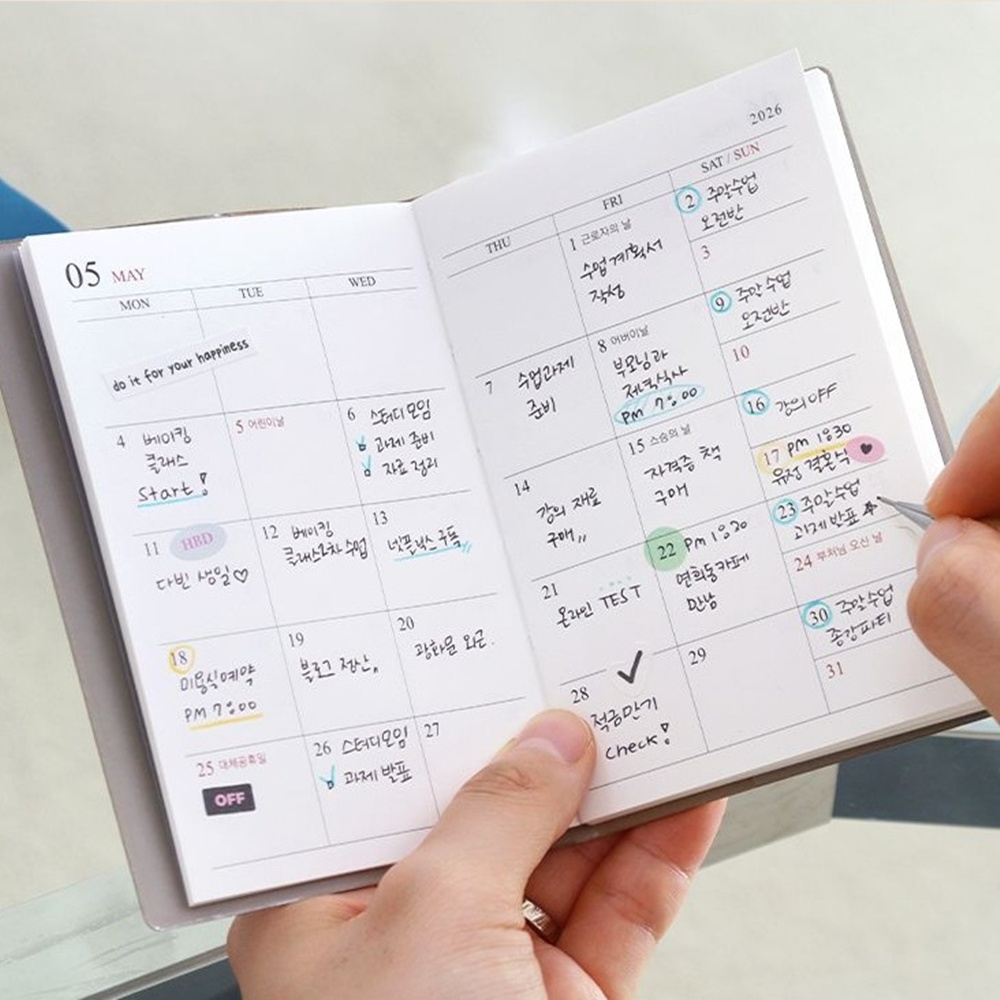 05 MAY
2026
MON
TUE
WED
THU
FRI
SAT / SUN
do it for your happiness
1 근로자의 날
수업계획서
작성
2 주말수업
오전반
3
4 베이킹
클래스
Start!
5 어린이날
6 스터디모임
과제 준비
자료 정리
7 수업과제
준비
8 어버이날
부모님과
저녁식사
PM 7:00
9 주말수업
오전반
10
11 HBD
다빈 생일♡
12 베이킹
클래스2차 수업
13
넷플릭스 구독
14
강의 재료
구매,,
15 스승의 날
자격증 책
구매
16 강의 OFF
17 PM 1:30
유정 결혼식 ♥
18
미용실예약
PM 7:00
19
블로그 정산,
20
광화문 외근.
21
온라인 TEST
22 PM 1:30
연희동카페
만남
23 주말수업
과제발표
24 부처님 오신 날
25 대체공휴일
OFF
26 스터디모임
과제 발표
27
28
적금만기
check!
29
30 주말수업
종강파티
31